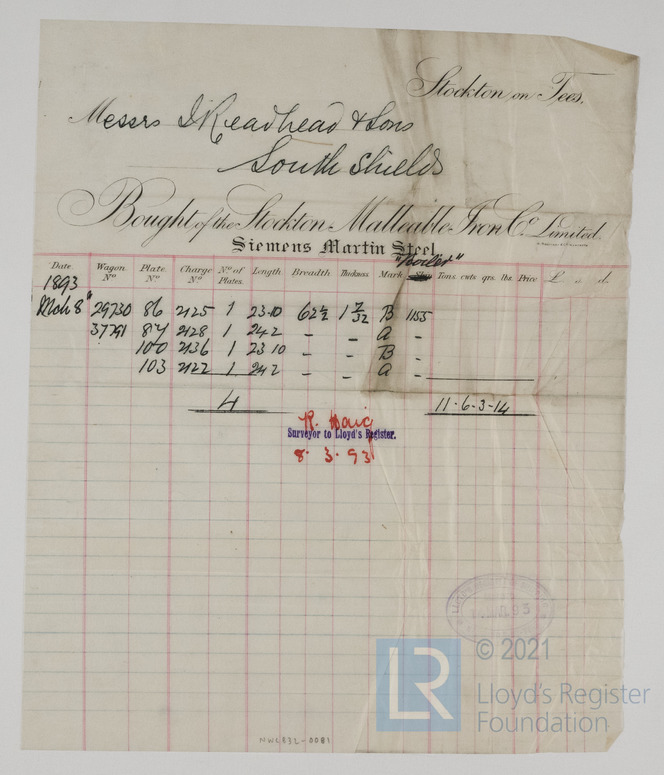 Stockton on Tees.
Messrs J Readhead & Sons
South Shields
Bought of the Stockton Malleable Iron Co. Limited
Siemens Martin Steel
"Boiler"
Date Wagon No Plate No Charge No No of Plates. Length Breadth Thickness Mark Tons. cwts qrs. lbs. Price £ s. d.
1893
Mch 8 29730 86 2125 1 23·10 62½ 1 7/32 B 1155
37791 87 2128 1 24·2 – – A –
100 2136 1 23·10 – – B –
103 2122 1 24·2 – – A –
4 11-6-3-14
R. Haig
Surveyor to Lloyd's Register.
8. 3. 93
© 2021
LR Lloyd's Register
Foundation
NWC832-0081